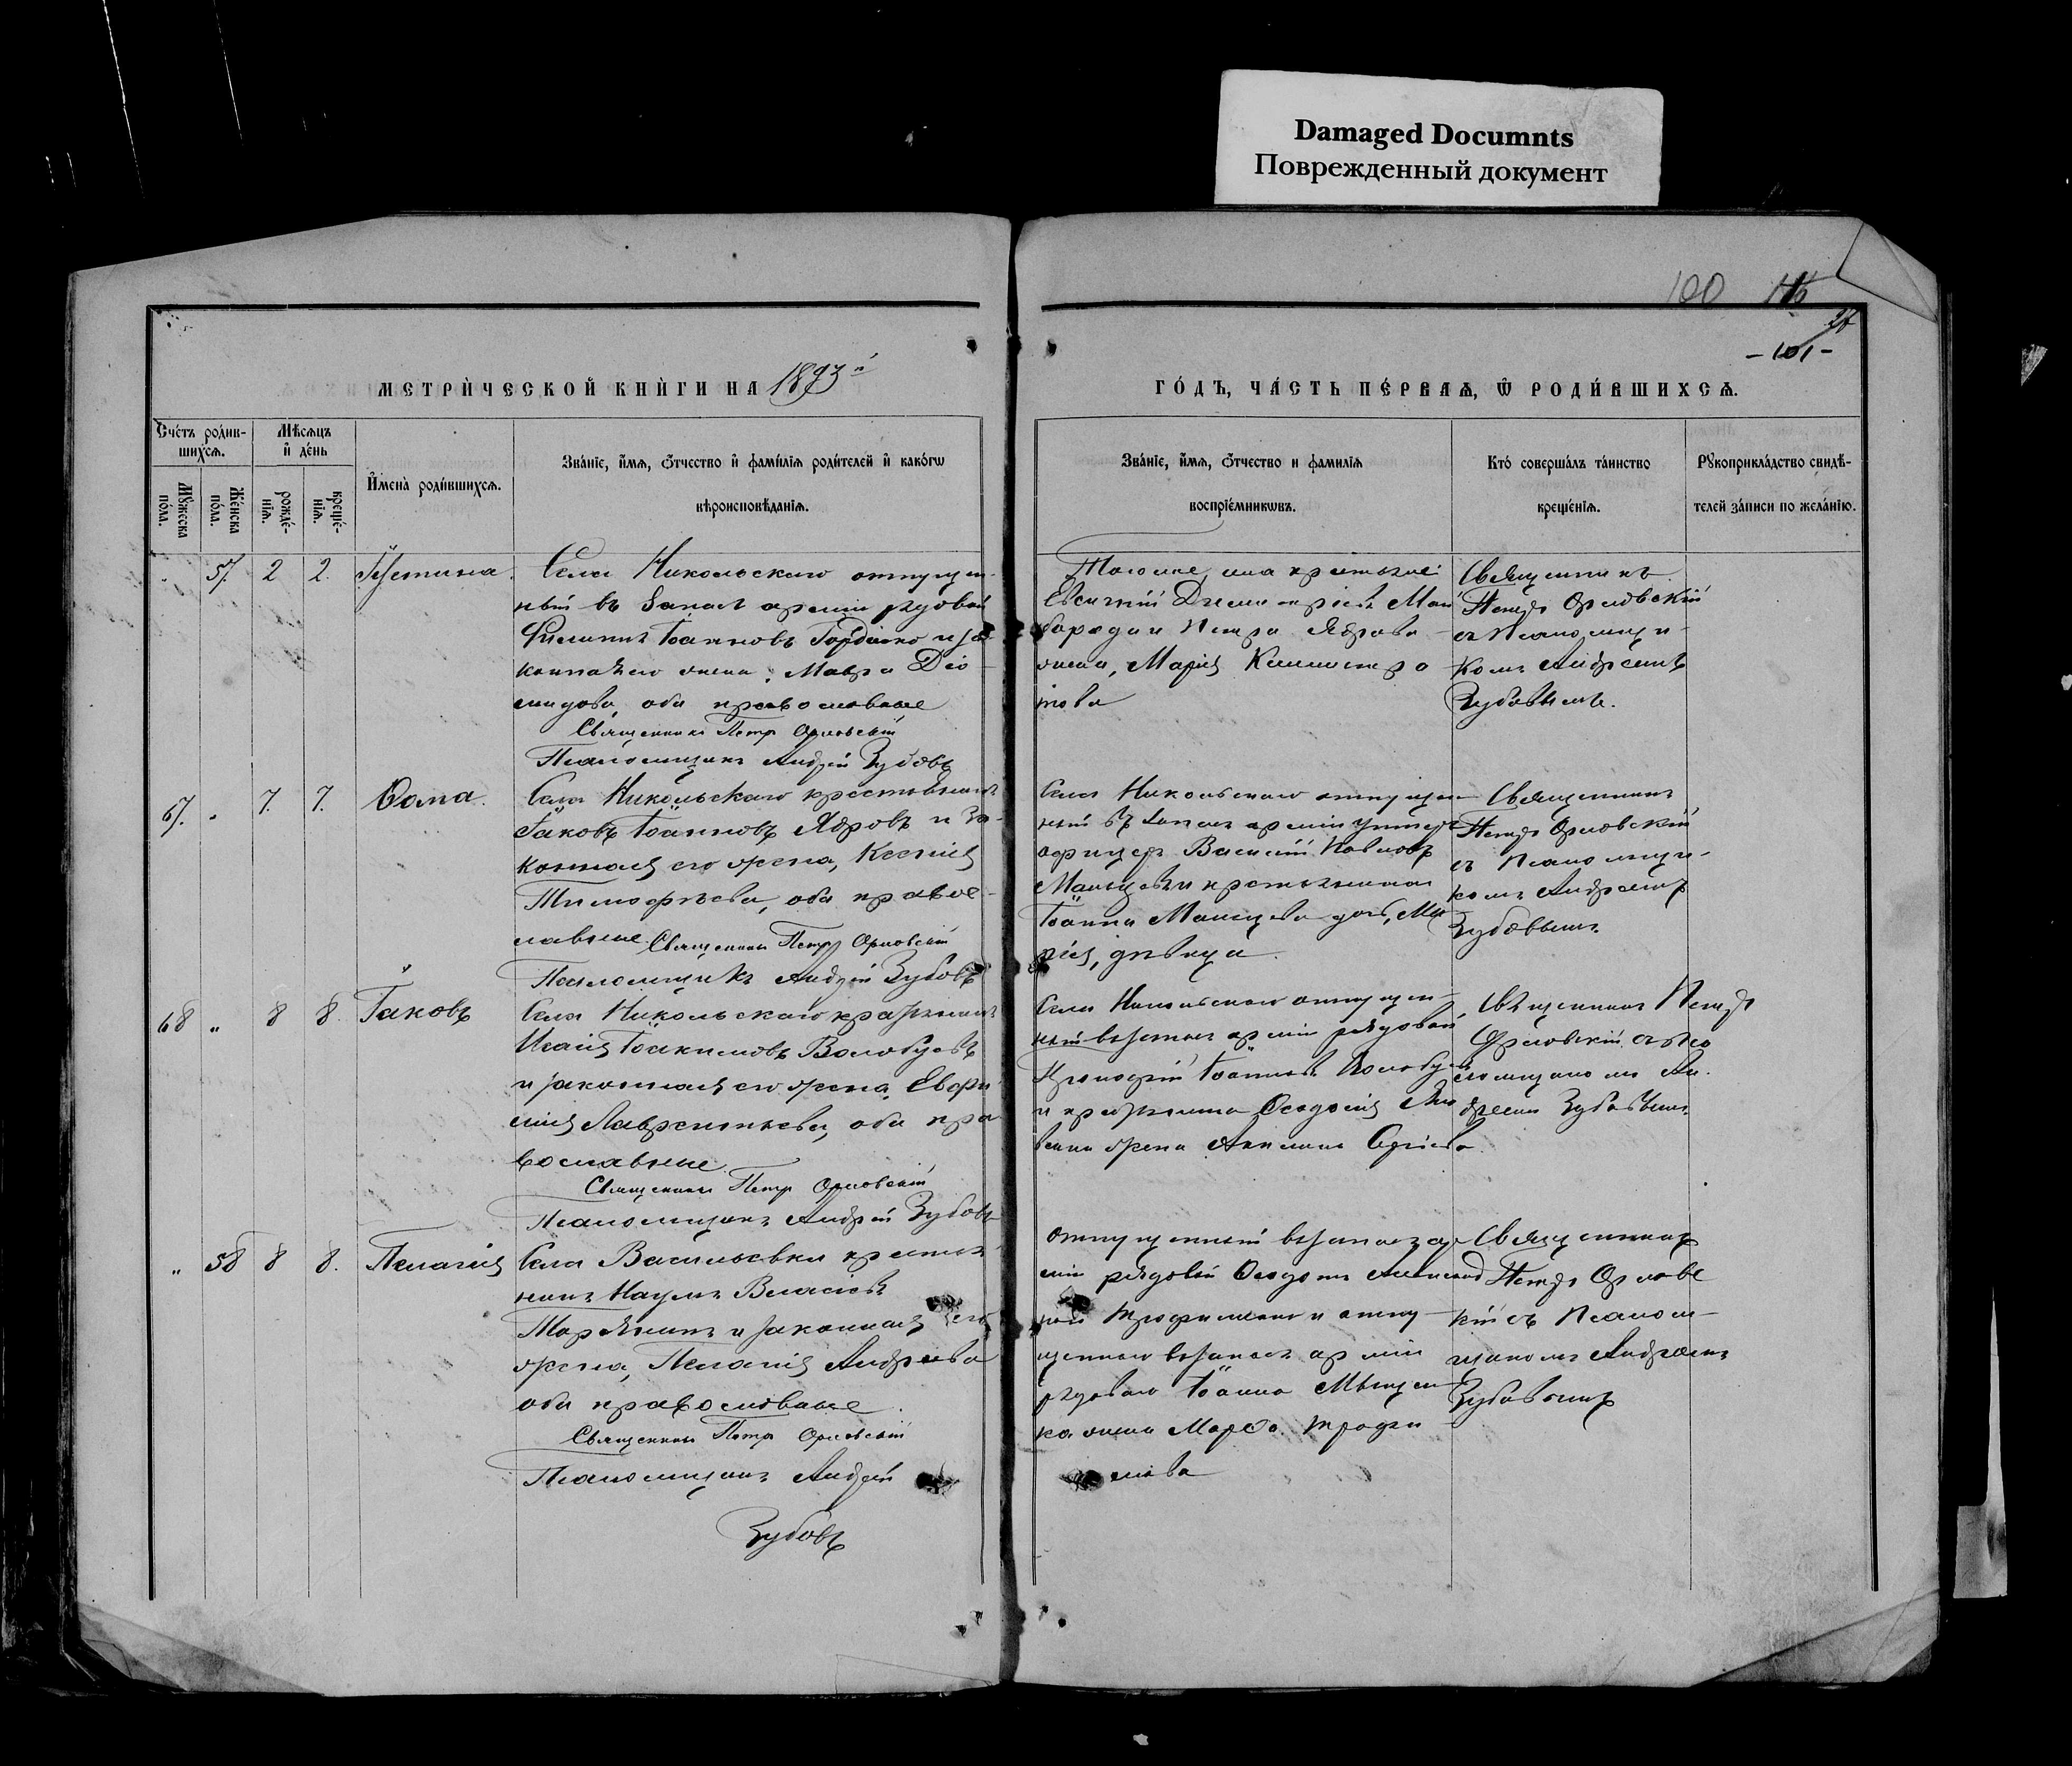 Damaged Documnts
Поврежденный документ
100
26
-101-
МЕТРИЧЕСКОЙ КНИГИ НА 1893й
ГОДЪ, ЧАСТЬ ПЕРВАЯ, Ѿ РОДИВШИХСЯ.
Счетъ родив-
шихся.
Мѣсяцъ
и день
Мужеска
пола.
Женска
пола.
рожде-
нія.
креще-
нія.
Имена родившихся.
Званіе, имя, отчество и фамилія родителей и какогѡ
вѣроисповѣданія.
Званіе, имя, отчество и фамилія
воспріемникѡвъ.
Кто совершалъ таинство
крещенія.
Рукоприкладство свидѣ-
телей записи по желанію.
57 2 2. Іустина
Села Никольскаго отпущен-
ный въ запасъ арміи рядовой
Филиппъ Іоанновъ Гордіенко и за-
конная его жена, Мавра Діо-
мидова, оба православные
Священникъ Петръ Орловскій
Псаломщикъ Андрей Зубовъ
Евсигній Димитріевъ
и Петра Ядрова
жена, Марія
Священникъ
Петръ Орловскій
съ Псаломщи-
комъ Андреемъ
Зубовымъ.
67. „ 7. 7. Ѳома.
Села Никольскаго крестьянинъ
Іаковъ Іоанновъ Ядровъ и за-
конная его жена, Ксенія
Тимофѣева, оба правос-
лавные. Священникъ Петръ Орловскій
Псаломщикъ Андрей Зубовъ
Села Никольскаго отпущен-
ный въ запасъ арміи унтеръ
офицеръ Василій Павловъ
Мальцевъ и крестьянина
Іоанна Мальцева дочь, Ма
рія, дѣвица.
Священникъ
Петръ Орловскій
съ Псаломщи-
комъ Андреемъ
Зубовымъ
68 „ 8 8. Іаковъ
Села Никольскаго крестьянинъ
Исаія Іоакимовъ Волобуевъ
и законная его жена, Евфи
мія Лаврентьева, оба пра
вославные.
Священникъ Петръ Орловскій
Псаломщикъ Андрей Зубовъ
Села Никольскаго отпущен-
ный въ запасъ арміи рядовой
Прокофій Іоанновъ Волобуевъ
и крестьянина Ѳеодосія
жена Акилина
Священникъ Петръ
Орловскій съ Пса
ломщикомъ Ан
дреемъ Зубовымъ
„ 58 8 8. Пелагія
Села Васильевки крестья
нинъ Наумъ Власіевъ
и законная его
жена, Пелагія Андреева
оба православные.
Священникъ Петръ Орловскій
Псаломщикъ Андрей
Зубовъ
Отпущенный въ запасъ ар
міи рядовой
и отпу-
щеннаго въ запасъ арміи
рядоваго Іоанна
жена Марѳа Трофи
мова
Священникъ
Петръ Орловс
кій съ Псалом-
щикомъ Андреемъ
Зубовымъ